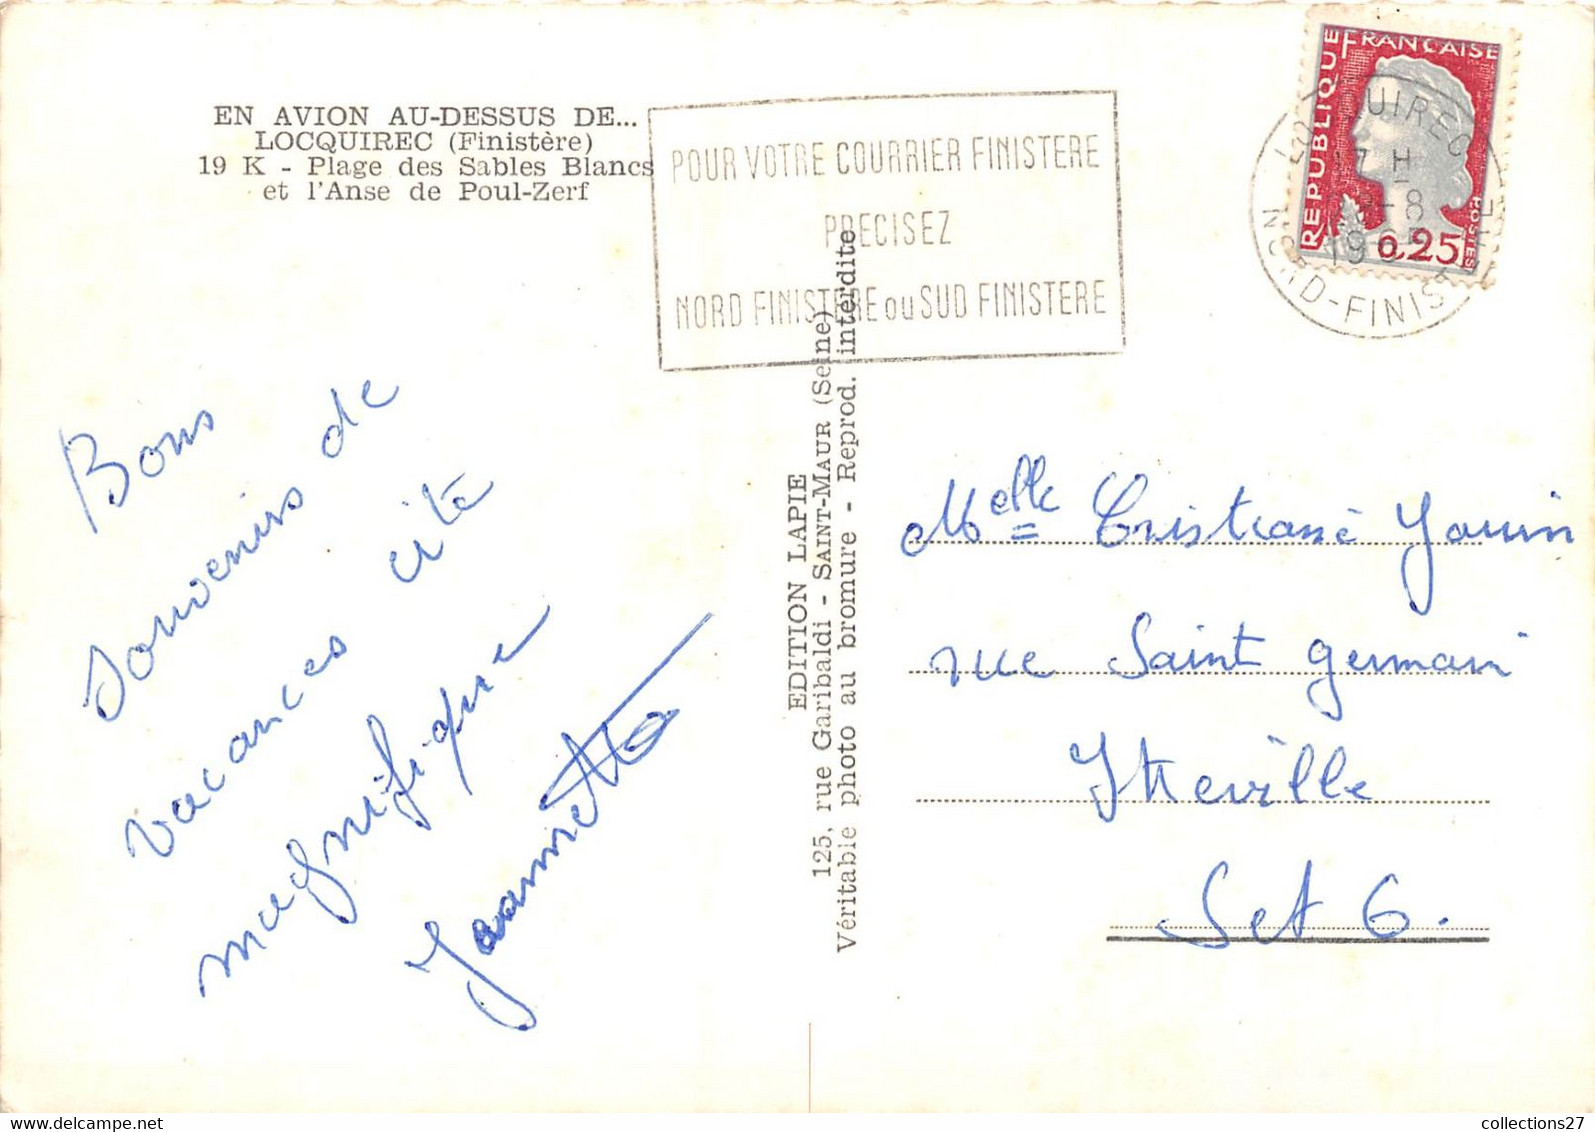 EN AVION AU-DESSUS DE...
LOCQUIREC (Finistère)
19 K - Plage des Sables Blancs
et l'Anse de Poul-Zerf
POUR VOTRE COURRIER FINISTERE
PRECISEZ
NORD FINISTERE ou SUD FINISTERE
REPUBLIQUE FRANCAISE
POSTES
0,25
LOCQUIREC
17 H
-8
NORD-FINISTERE
Bons
souvenirs de
vacances cité
magnifique
Jeannette
EDITION LAPIE
125, rue Garibaldi - SAINT-MAUR (Seine)
Véritable photo au bromure - Reprod. interdite
Melle Cristiane
rue Saint germain
Itteville
Set O.
collections27